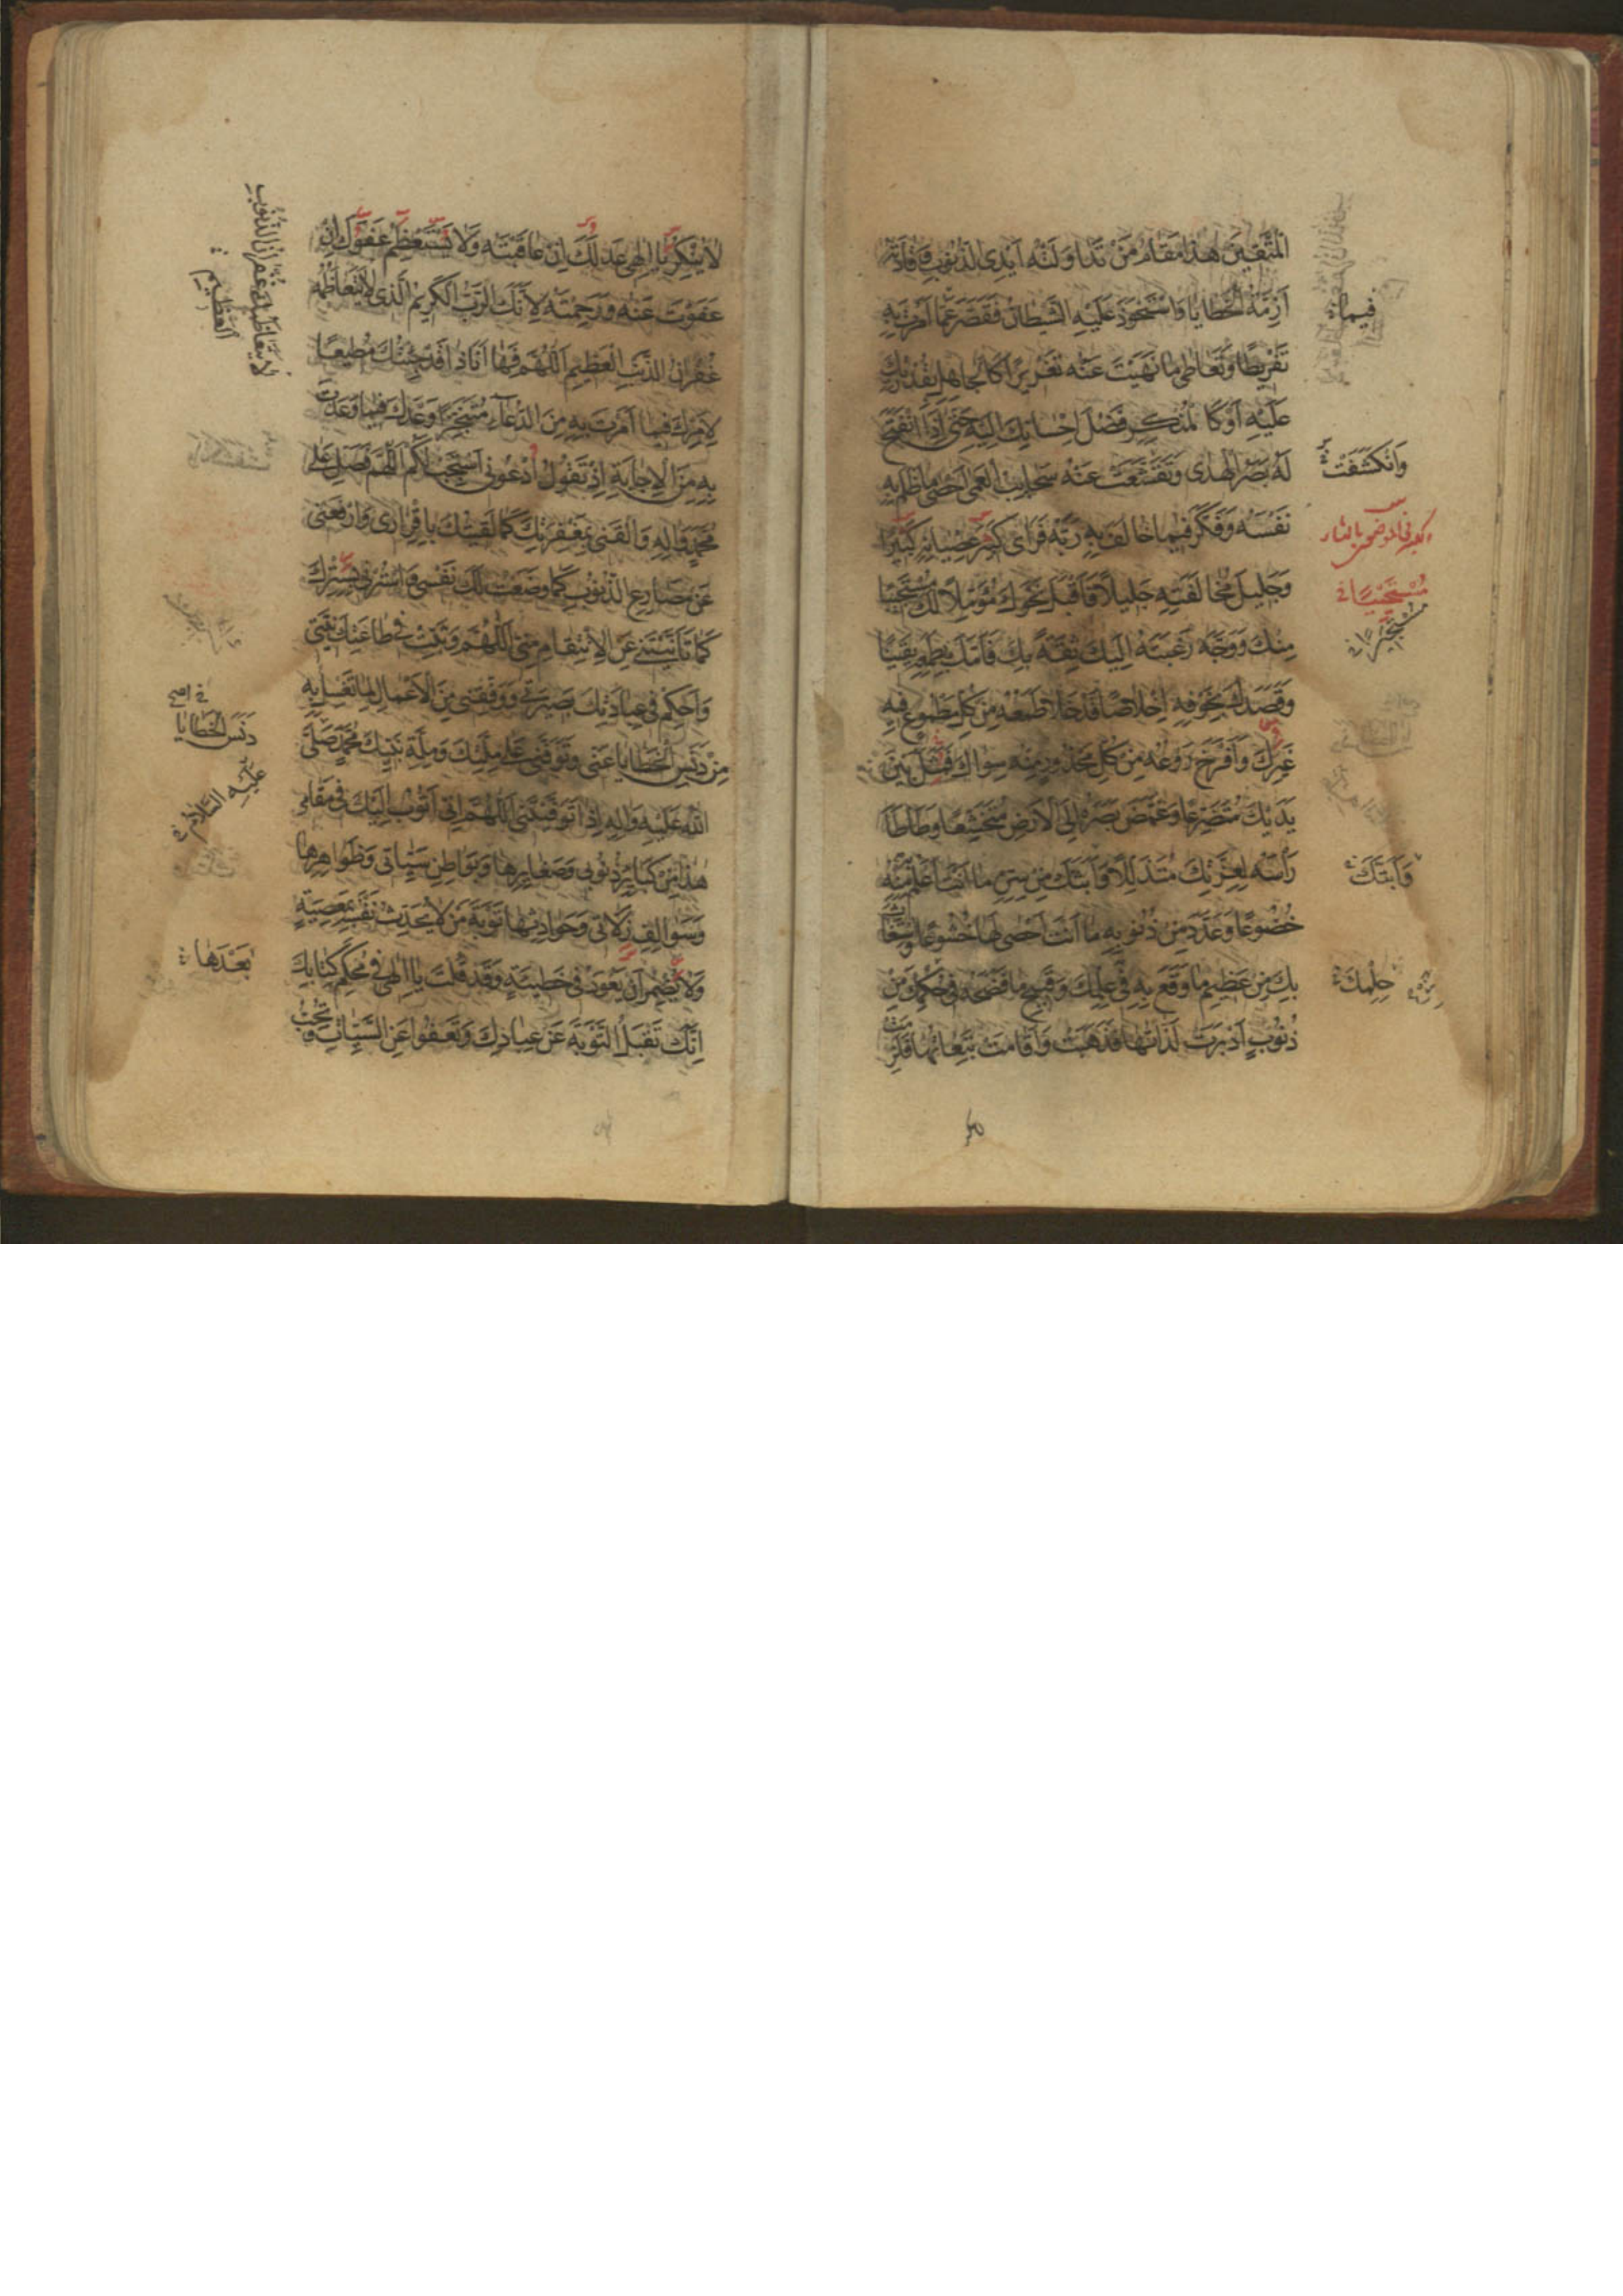 الْمُتَّقِينَ هٰذَا مَقَامُ مَنْ تَدَاوَلَتْهُ اَيْدِى الذُّنُوبِ وَقَادَتْهُ
اَزِمَّةُ الْخَطَايَا وَاسْتَحْوَذَ عَلَيْهِ الشَّيْطَانُ فَقَصَّرَ عَمَّا اَمَرْتَ بِهِ
تَفْرِيطًا وَتَعَاطٰى مَا نَهَيْتَ عَنْهُ تَغْرِيرًا كَالْجَاهِلِ بِقُدْرَتِكَ
عَلَيْهِ اَوْ كَالْمُنْكِرِ فَضْلَ اِحْسَانِكَ اِلَيْهِ حَتّٰى اِذَا انْفَتَحَ
لَهُ بَصَرُ الْهُدٰى وَتَقَشَّعَتْ عَنْهُ سَحَايِبُ الْعَمٰى اَحْصٰى مَا ظَلَمَ بِهِ
نَفْسَهُ وَفَكَّرَ فِيمَا خَالَفَ بِهِ رَبَّهُ فَرَاٰى كَبِيرَ عِصْيَانِهِ كَبِيرًا
وَجَلِيلَ مُخَالَفَتِهِ جَلِيلًا فَاَقْبَلَ نَحْوَكَ مُؤَمِّلًا لَكَ مُسْتَحْيِيًا
مِنْكَ وَوَجَّهَ رَغْبَتَهُ اِلَيْكَ ثِقَةً بِكَ فَاَمَّكَ بِطَمَعِهِ يَقِينًا
وَقَصَدَكَ بِخَوْفِهِ اِخْلَاصًا قَدْ خَلَا طَمَعُهُ مِنْ كُلِّ مَطْمُوعٍ فِيهِ
غَيْرِكَ وَاَفْرَخَ رَوْعُهُ مِنْ كُلِّ مَحْذُورٍ مِنْهُ سِوَاكَ فَمَثَلَ بَيْنَ
يَدَيْكَ مُتَضَرِّعًا وَغَمَّضَ بَصَرَهُ اِلَى الْاَرْضِ مُتَخَشِّعًا وَطَاْطَاَ
رَاْسَهُ لِعِزَّتِكَ مُتَذَلِّلًا وَاَبَثَّكَ مِنْ سِرِّهِ مَا اَنْتَ اَعْلَمُ بِهِ مِنْهُ
خُضُوعًا وَعَدَّدَ مِنْ ذُنُوبِهِ مَا اَنْتَ اَحْصٰى لَهَا خُشُوعًا وَاسْتَغَاثَ
بِكَ مِنْ عَظِيمِ مَا وَقَعَ بِهِ فِى عِلْمِكَ وَقَبِيحِ مَا فَضَحَهُ فِى حُكْمِكَ مِنْ
ذُنُوبٍ اَدْبَرَتْ لَذَّاتُهَا فَذَهَبَتْ وَاَقَامَتْ تَبِعَاتُهَا فَلَزِمَتْ
فِيمَا
وَانْكَشَفَتْ
مُسْتَحْيِيًا
وَاَبَثَّكَ
حِلْمِكَ
لَا يُنْكِرُ يَا اِلٰهِى عَدْلَكَ اِنْ عَاقَبْتَهُ وَلَا يَسْتَعْظِمُ عَفْوَكَ اِنْ
عَفَوْتَ عَنْهُ وَرَحِمْتَهُ لِاَنَّكَ الرَّبُّ الْكَرِيمُ الَّذِى لَا يَتَعَاظَمُهُ
غُفْرَانُ الذَّنْبِ الْعَظِيمِ اَللّٰهُمَّ فَهَا اَنَا ذَا قَدْ جِئْتُكَ مُطِيعًا
لِاَمْرِكَ فِيمَا اَمَرْتَ بِهِ مِنَ الدُّعَاءِ مُتَنَجِّزًا وَعْدَكَ فِيمَا وَعَدْتَ
بِهِ مِنَ الْاِجَابَةِ اِذْ تَقُولُ ادْعُونِى اَسْتَجِبْ لَكُمْ اَللّٰهُمَّ فَصَلِّ عَلٰى
مُحَمَّدٍ وَاٰلِهِ وَالْقَنِى بِمَغْفِرَتِكَ كَمَا لَقِيتُكَ بِاِقْرَارِى وَارْفَعْنِى
عَنْ مَصَارِعِ الذُّنُوبِ كَمَا وَضَعْتُ لَكَ نَفْسِى وَاسْتُرْنِى بِسِتْرِكَ
كَمَا تَاَنَّيْتَنِى عَنِ الْاِنْتِقَامِ مِنِّى اَللّٰهُمَّ وَثَبِّتْ فِى طَاعَتِكَ نِيَّتِى
وَاَحْكِمْ فِى عِبَادَتِكَ بَصِيرَتِى وَوَفِّقْنِى مِنَ الْاَعْمَالِ لِمَا تَغْسِلُ بِهِ
مِنْ دَنَسِ الْخَطَايَا عَنِّى وَتَوَفَّنِى عَلٰى مِلَّتِكَ وَمِلَّةِ نَبِيِّكَ مُحَمَّدٍ صَلَّى
اللّٰهُ عَلَيْهِ وَاٰلِهِ اِذَا تَوَفَّيْتَنِى اَللّٰهُمَّ اِنِّى اَتُوبُ اِلَيْكَ فِى مَقَامِى
هٰذَا مِنْ كَبَايِرِ ذُنُوبِى وَصَغَايِرِهَا وَبَوَاطِنِ سَيِّئَاتِى وَظَوَاهِرِهَا
وَسَوَالِفِ زَلَّاتِى وَحَوَادِثِهَا تَوْبَةَ مَنْ لَا يُحَدِّثُ نَفْسَهُ بِمَعْصِيَةٍ
وَلَا يُضْمِرُ اَنْ يَعُودَ فِى خَطِيئَةٍ وَقَدْ قُلْتَ يَا اِلٰهِى فِى مُحْكَمِ كِتَابِكَ
اِنَّكَ تَقْبَلُ التَّوْبَةَ عَنْ عِبَادِكَ وَتَعْفُوا عَنِ السَّيِّئَاتِ وَتُحِبُّ
لَا يَتَعَاظَمُكَ غُفْرَانُ الذُّنُوبِ
الْعَظِيمِ
دَنَسَ الْخَطَايَا
عَلَيْهِ السَّلَامُ
بَعْدَهَا